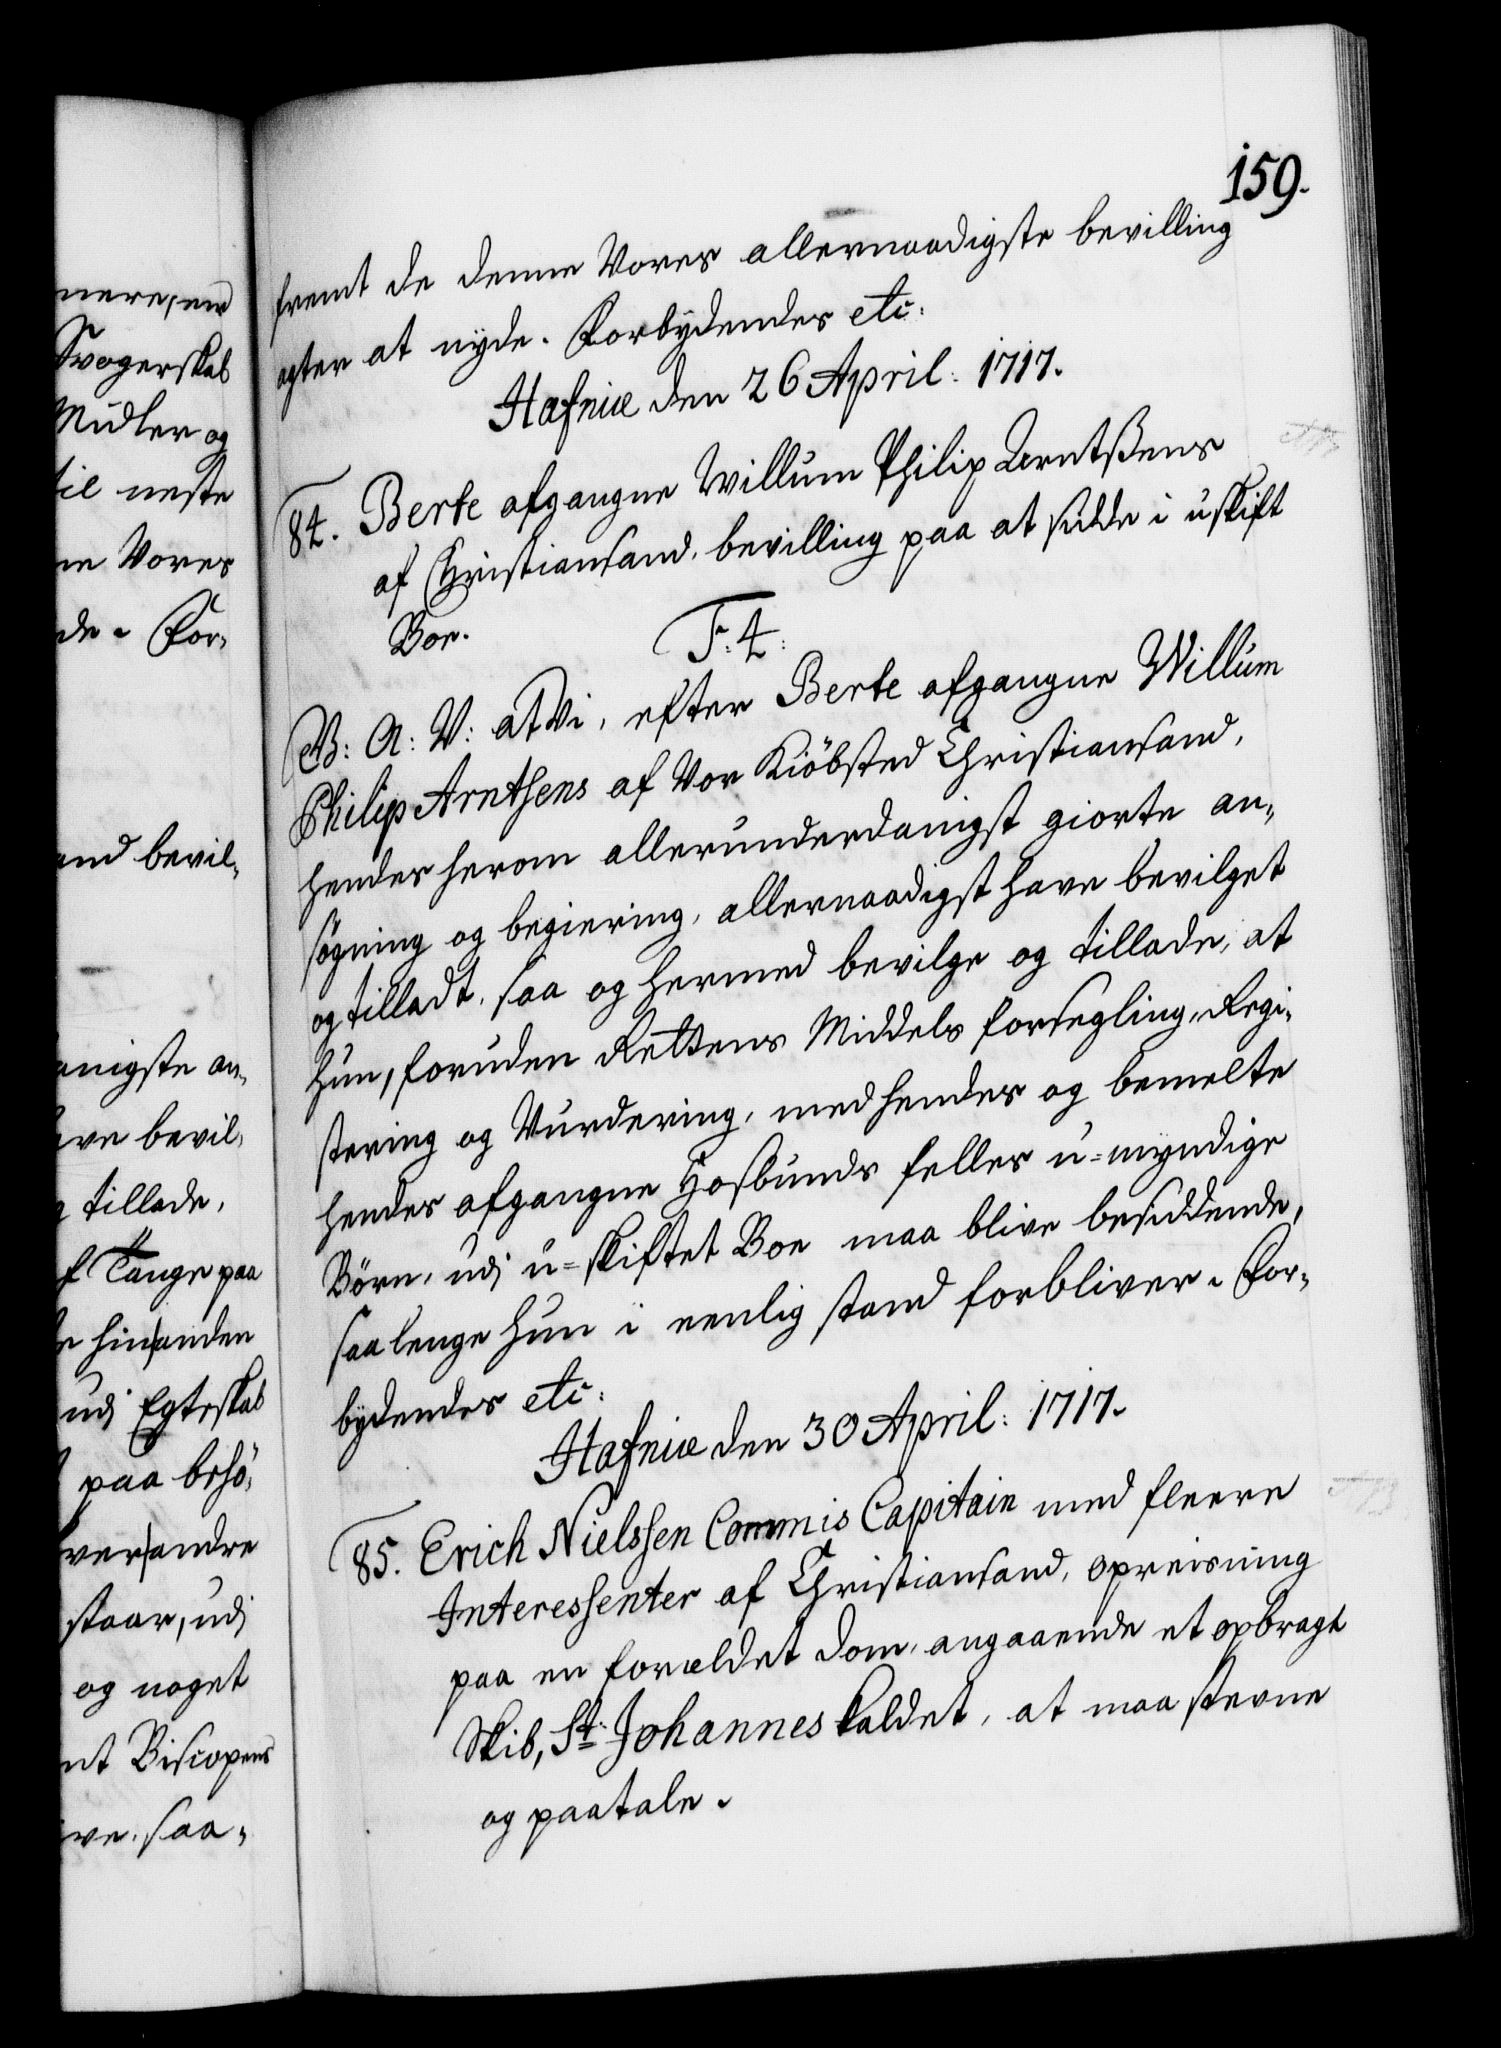 159.
fremt de denne Vores allernaadigste bevilling
agter at nyde. Forbydendes etc:
Hafniæ den 26 April: 1717.
84. Berte afgangne Willum Philip Arntßens
af Christiansand, bevilling paa at sidde i uskift
Boe.
F: 4:
V: A: V: at Vi, efter Berte afgangne Willum
Philip Arntsens af Vor Kiöbsted Christiansand,
hendes herom allerunderdanigst giorte an-
søgning og begiering, allernaadigst have bevilget
og tilladt, saa og hermed bevilge og tillade, at
hun, foruden Rettens Middels forsegling, Regi-
stering og Vurdering, med hendes og bemelte
hendes afgangne Hosbunds felles u-myndige
Börn, udj u-skiftet Boe maa blive besiddende,
saa lenge hun i eenlig stand forbliver. For-
bydendes etc:
Hafniæ den 30 April: 1717.
85. Erich Nielssen Commis Capitain med fleere
Interessenter af Christiansand, opreisning
paa en forældet dom, angaaende et opbragt
Skib, St. Johannes kaldet, at maa stevne
og paatale.
Svogerskab
Midler og
til neste
Vores
de. For-
and bevil-
anigste an-
ve bevil-
tillade,
f Tange paa
hinanden
udj Egteskab
paa behö-
verandre
staar, udj
og noget
nt Biscopens
ve, saa-